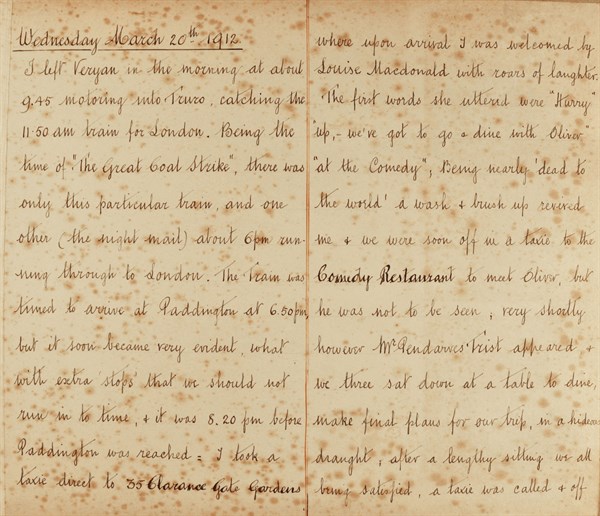 Wednesday March 20th 1912
I left Veryan in the morning at about
9.45 motoring into Truro, catching the
11.50 am train for London. Being the
time of "The Great Coal Strike", there was
only this particular train, and one
other (the night mail) about 6pm run-
ning through to London. The Train was
timed to arrive at Paddington at 6.50pm
but it soon became very evident, what
with extra stops that we should not
run in to time, & it was 8.20 pm before
Paddington was reached = I took a
taxie direct to 35 Clarance Gate Gardens
where upon arrival I was welcomed by
Louise Macdonald with roars of laughter.
The first words she uttered were "Hurry"
"up, - we've got to go & dine with Oliver"
"at the Comedy"; Being nearly 'dead to
the world' a wash & brush up revived
me & we were soon off in a taxie to the
Comedy Restaurant to meet Oliver, but
he was not to be seen; very shortly
however Mr Pendarves Trist appeared &
we three sat down at a table to dine,
make final plans for our trip, in a hideous
draught; after a lengthy sitting we all
being satisfied, a taxie was called & off